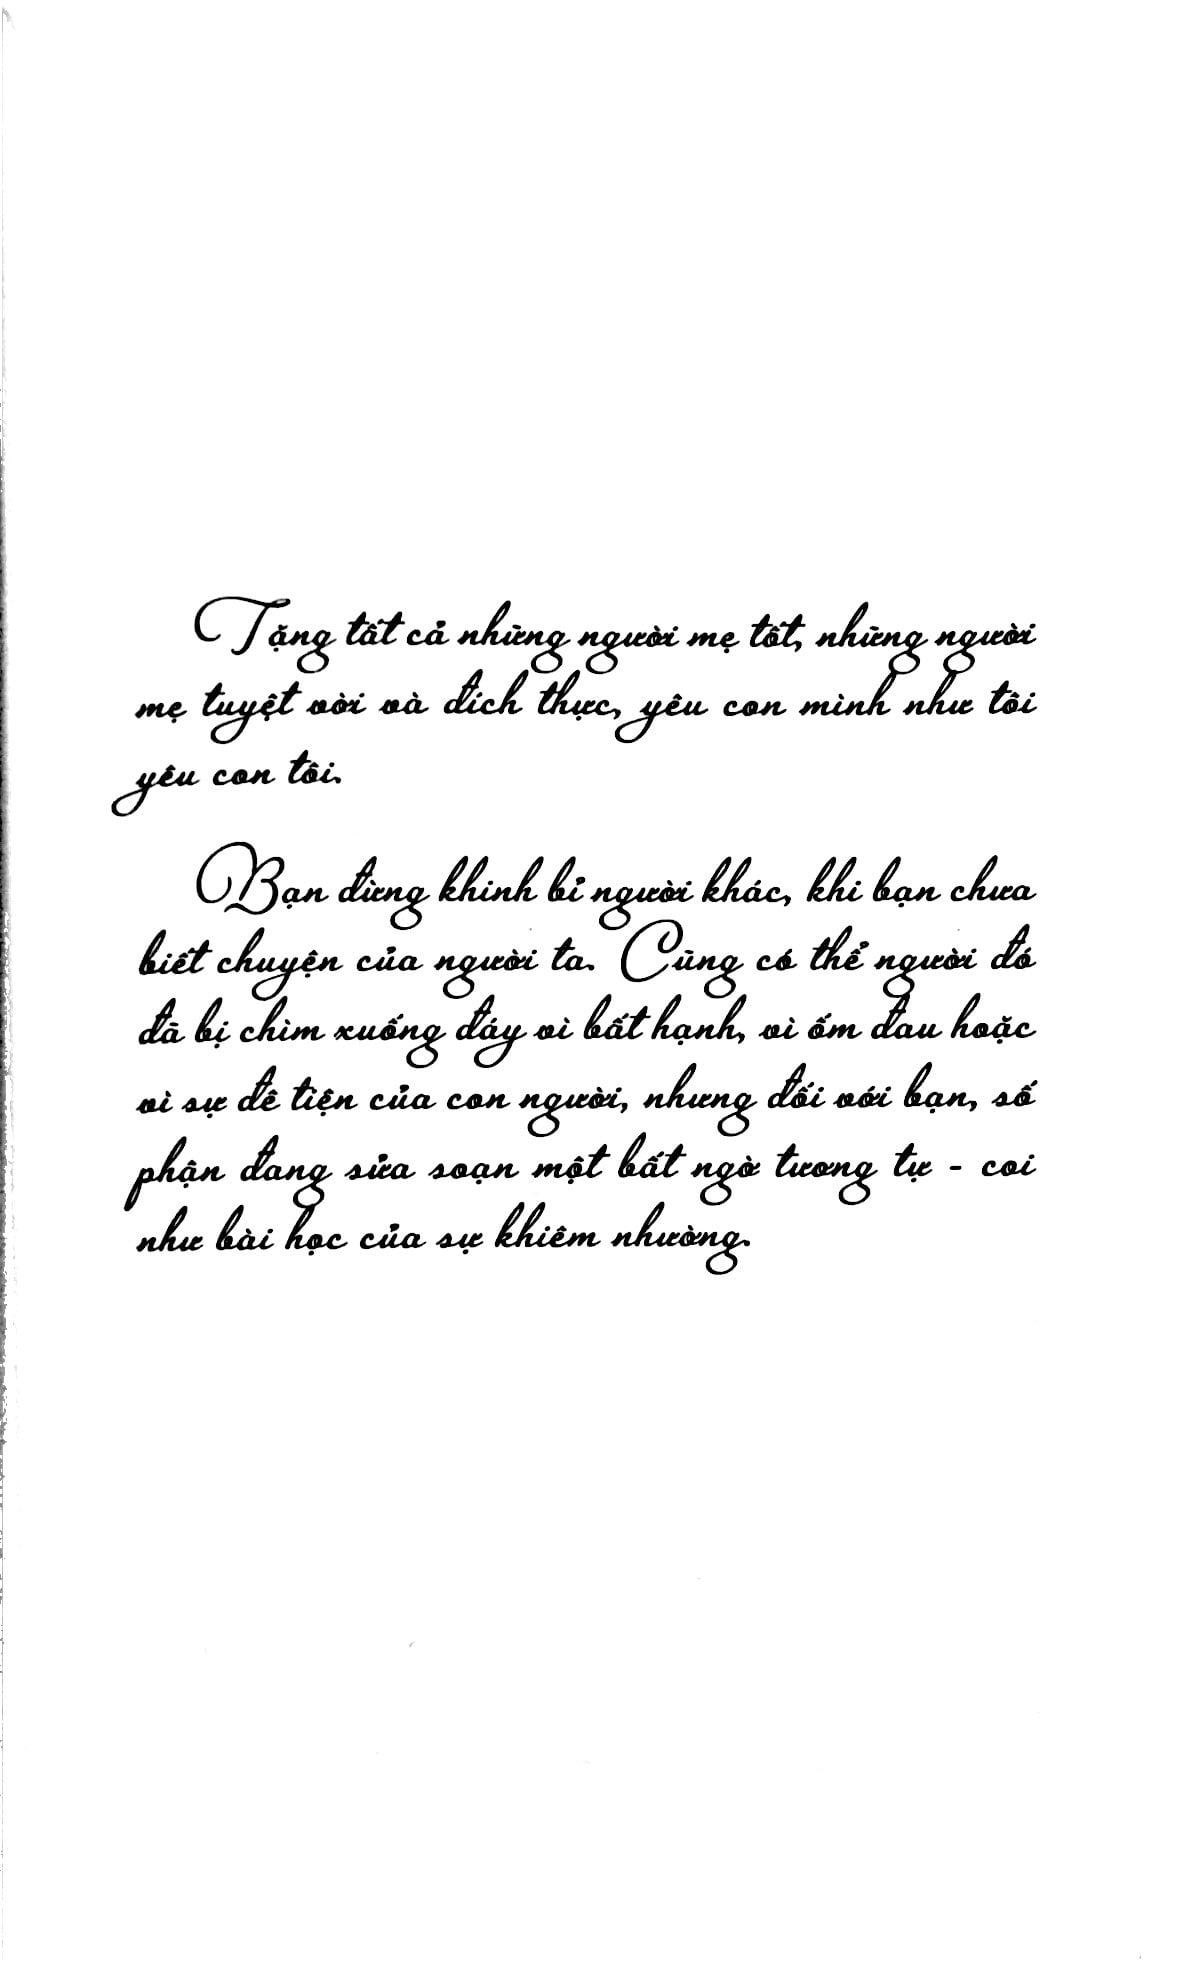 Tặng tất cả những người mẹ tốt, những người
mẹ tuyệt vời và đích thực, yêu con mình như tôi
yêu con tôi.
Bạn đừng khinh bỉ người khác, khi bạn chưa
biết chuyện của người ta. Cũng có thể người đó
đã bị chìm xuống đáy vì bất hạnh, vì ốm đau hoặc
vì sự đê tiện của con người, nhưng đối với bạn, số
phận đang sửa soạn một bất ngờ tương tự - coi
như bài học của sự khiêm nhường.